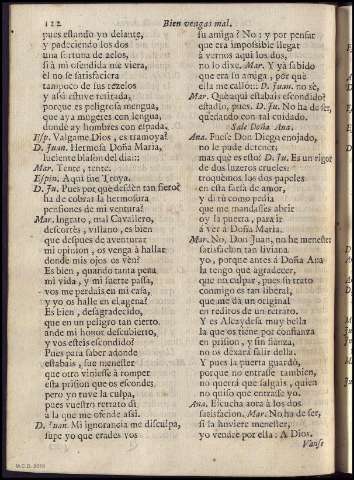 122
Bien vengas mal.
pues estando yo delante,
y padeciendo los dos
una fortuna de zelos,
si à mi ofendida me viera,
èl no se satisfaciera
tampoco de sus rezelos
y assi estuve retirada,
porque es peligrosa mengua,
que aya mugeres con lengua,
donde ay hombres con espada.
Esp. Valgame Dios, es tramoya?
D. Juan. Hermosa Doña Maria,
luciente blason del dia::
Mar. Tente, tente.
Espin. Aqui fue Troya.
D. Ju. Pues por què desdèn tan fiero
ha de cobrar la hermosura
pensiones de mi ventura?
Mar. Ingrato, mal Cavallero,
descortès, villano, es bien
que despues de aventurar
mi opinion, os venga à hallar
donde mis ojos os vèn?
Es bien, quando tanta pena
mi vida, y mi suerte passa,
vos me perdais en mi casa,
y yo os halle en el agena?
Es bien, desagradecido,
que en un peligro tan cierto
ande mi honor descubierto,
y vos esteis escondido?
Pues para saber adonde
estabais, fue menester
que otro viniesse à romper
esta prision que os esconde,
pero yo tuve la culpa,
pues vuestro retrato di
à la que me ofende assi.
D. Juan. Mi ignorancia me disculpa,
supe yo que erades vos
su amiga? No: y por pensar
que era impossible llegar
à vernos aqui los dos,
no lo dixe. Mar. Y yà sabido
que era su amiga, por què
ella me callò:: D. Juan. no sè.
Mar. Què aqui estabais escondido?
estadlo, pues. D. Ju. No ha de ser,
quedando con tal cuidado.
Sale Doña Ana.
Ana. Fuese Don Diego enojado,
no le pude detener;
mas què es esto? D. Ju. Es un rigor
de dos luzeros crueles:
troquèmos los dos papeles
en esta farsa de amor,
y di tù como pedia
que me mandasses abrir
oy la puerta, para ir
à vèr à Doña Maria.
Mar. No, Don Juan, no ha menester
satisfacion tan liviana
yo, porque antes à Doña Ana
la tengo que agradecer,
que na culpa, pues su trato
conmigo es tan liberal,
que me dà un original
en reditos de un retrato.
Y es Alcaydesa muy bella
la que os tiene por confianza
en prision, y sin fianza,
no os dexarà salir della.
Y pues la puerta guardò,
porque no entrasse tambien,
no querrà que salgais, quien
no quiso que entrasse yo.
Ana. Escucha aora à los dos
satisfacion. Mar. No ha de ser,
si la huviere menester,
yo vendrè por ella: A Dios.
Vanse